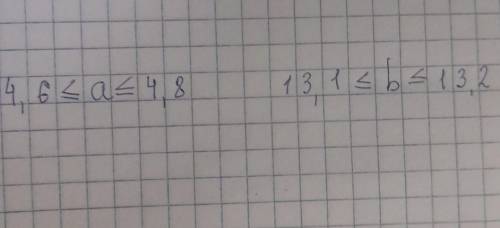 4,6 ≤ a ≤ 4,8 13,1 ≤ b ≤ 13,2